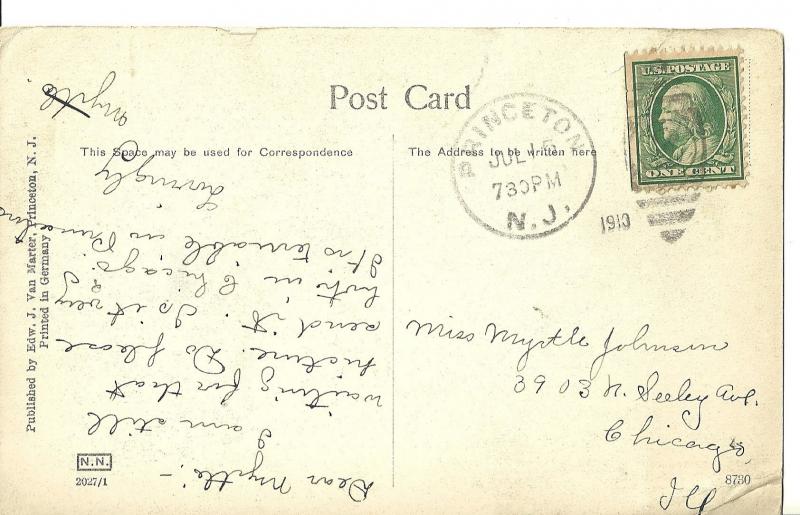 Post Card
This Space may be used for Correspondence
The Address to be written here
PRINCETON
JUL 15
730PM
N.J.
1910
U.S. POSTAGE
ONE CENT
Dear Myrtle:-
I am still
waiting for that
picture. Do please
send it. Is it very
hot in Chicago?
It's terrible in Princeton
Lovingly
Myrtle
Miss Myrtle Johnson
3903 N. Seeley Ave.
Chicago,
Ill
Published by Edw. J. Van Marter, Princeton, N. J.
Printed in Germany
N.N.
2027/1
8730